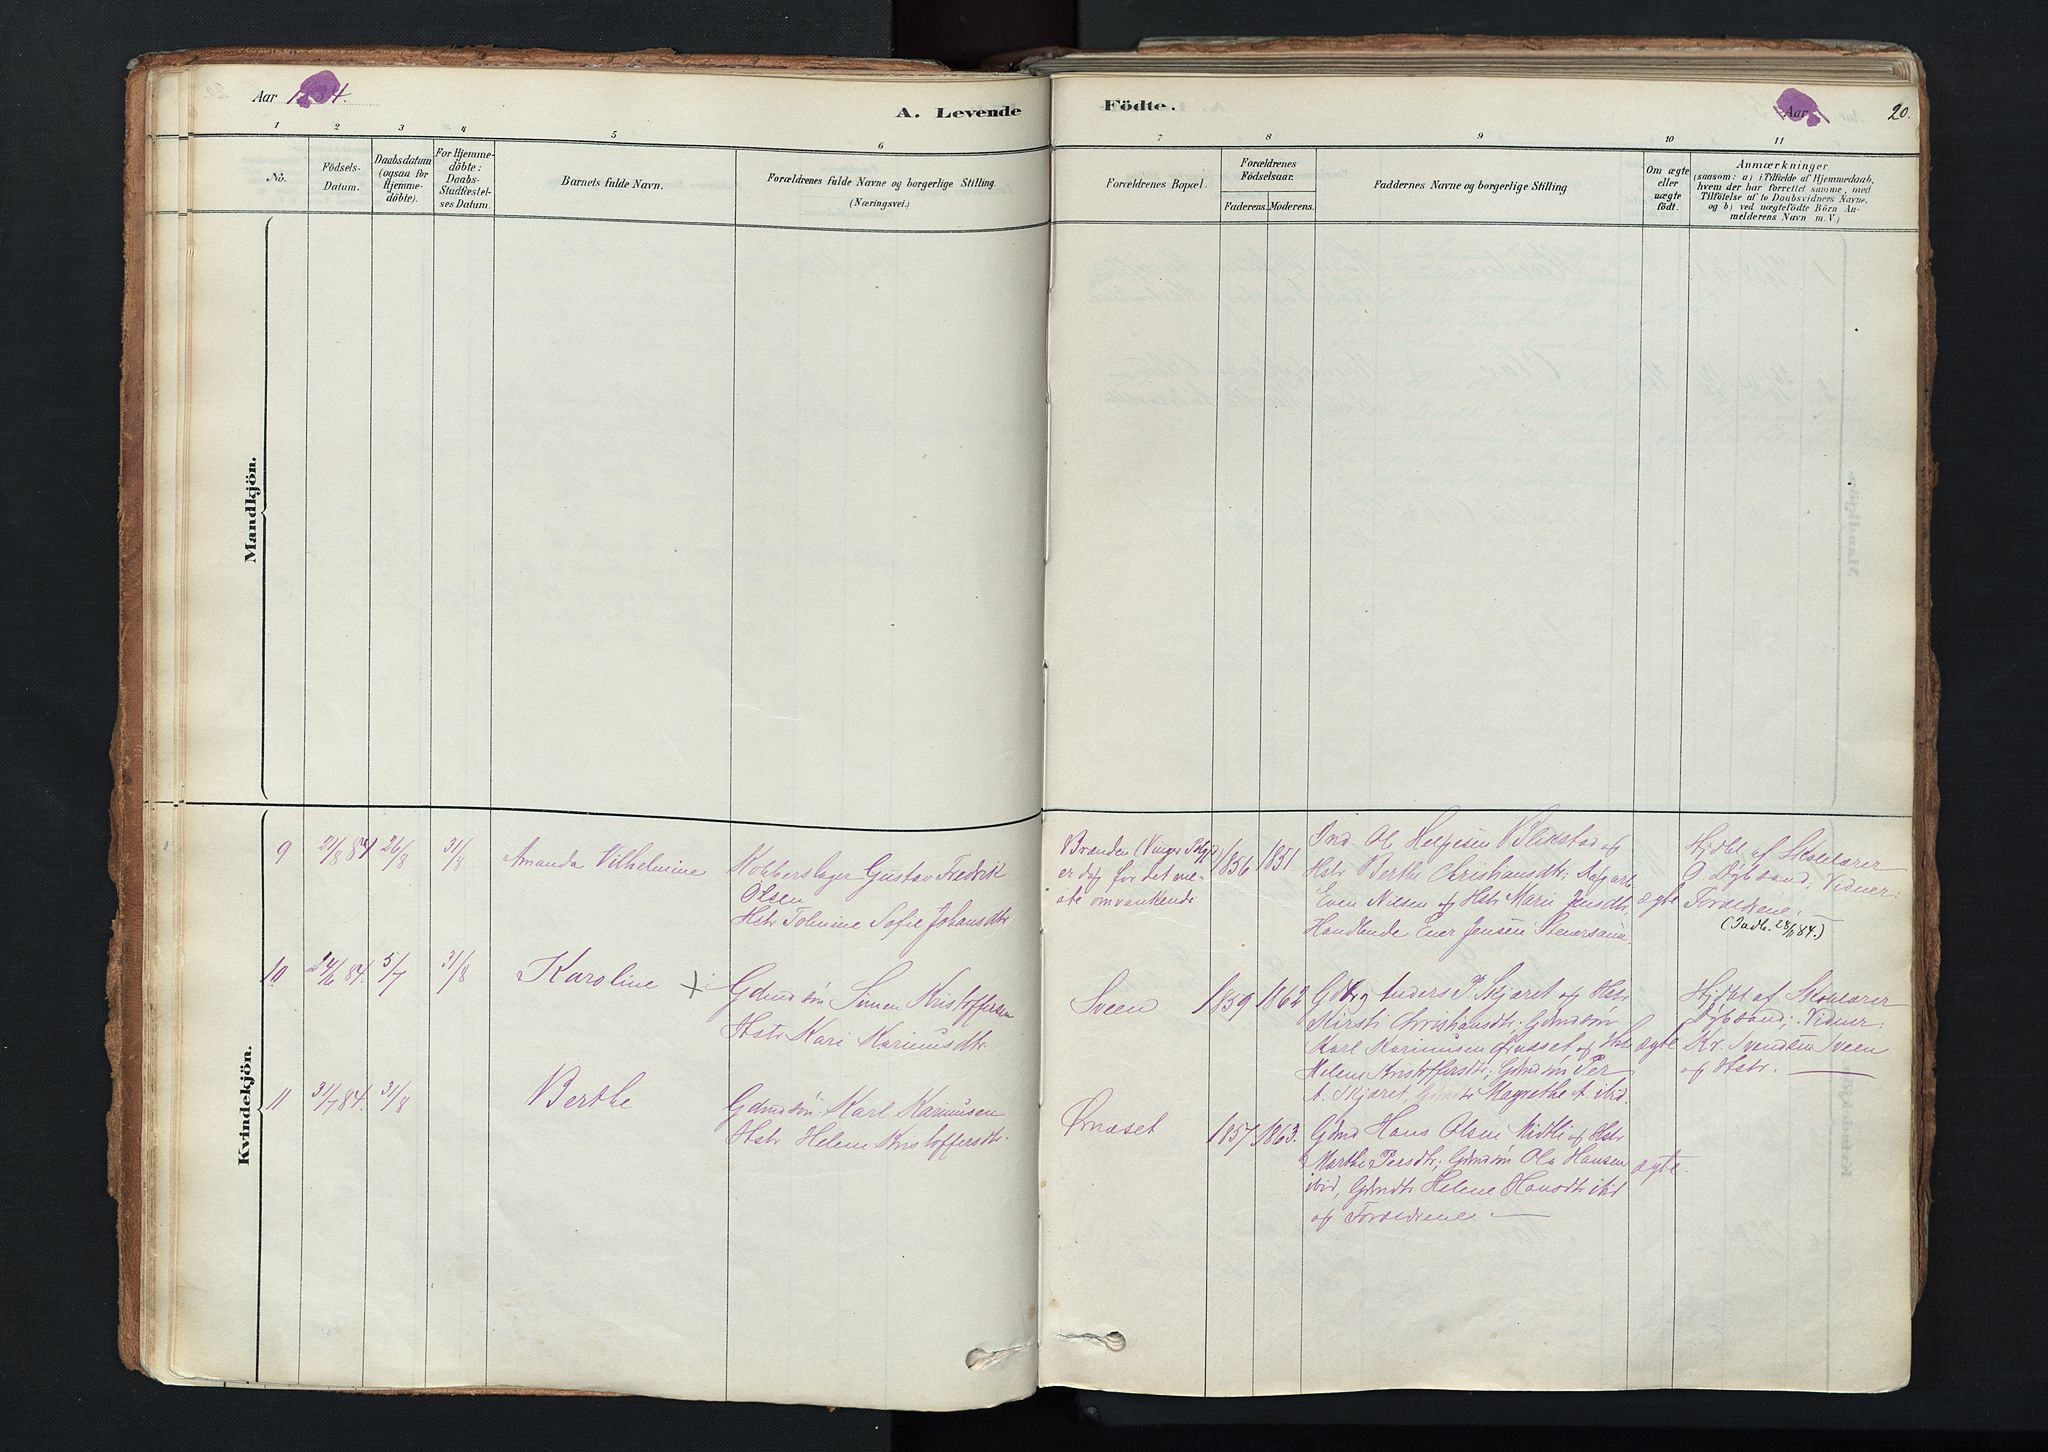 Aar 1884.
A. Levende
Födte.
Aar
20.
1 2 3 4 5 6 7 8 9 10 11
No.
Födsels-
Datum.
Daabsdatum
(ogsaa for
Hjemme-
döbte).
For Hjemme-
döbte:
Daabs-
Stadfæstel-
ses Datum.
Barnets fulde Navn.
Forældrenes fulde Navne og borgerlige Stilling.
(Næringsvei.)
Forældrenes Bopæl.
Forældrenes
Födselsaar.
Faderens. Moderens.
Faddernes Navne og borgerlige Stilling
Om ægte
eller
uægte
födt.
Anmærkninger
(saasom: a) i Tilfælde af Hjemmedaab,
hvem der har forrettet samme, med
Tilföielse af to Daabsvidners Navne,
og b) ved uægtefödte Börn An-
melderens Navn m. V.)
Mandkjön.
Kvindekjön.
9 21/8 84 26/8 31/8 Amanda Vilhelmine
Kobberslager Gustav Fredrik
Olsen
Hstr Sofie Johansdtr
Branden (Vinger
er dog for det me-
ste omvankende
1856 1851
Ind. Ole Helgesen Blikstad og
Hstr Berthe Christiansdtr;
Even Nilsen og Hstr Marie Jensdtr,
Handlende Jensen
ægte
Hjdbt af Skolelærer
O. Dybsand; Vidner:
Forældrene. —
(Indb. 84.)
10 24/6 84. 5/7 31/8 Karoline +
Gdmdsøn Simen Kristoffersen
Hstr Kari Karinusdtr.
Sveen 1859 1862
Gdbrg Anders P. Skjæret og Hstr
Kirsti Christiansdtr; Gdmdsøn
Karl Karinusen Ørnæset og Hstr
Helene Kristoffersdtr; Gdmdsøn Per
A. Skjæret, Gdmdtr Magrethe A. ibid.
ægte
Hjdbt af Skolelærer
Dybsand; Vidner:
Kr. Svendsen Sveen
og Hstr. —
11 31/7 84. 31/8 Berthe
Gdmdsøn Karl Karinusen
Hstr Helene Kristoffersdtr.
Ørnæset 1857 1863.
Gdmd Hans Olsen Midtli og Hstr
Marthe Persdtr; Gdmdsøn Ole Hansen
ibid, Gdmdtr Helene Hansdtr ibid
og Forældrene —
ægte.